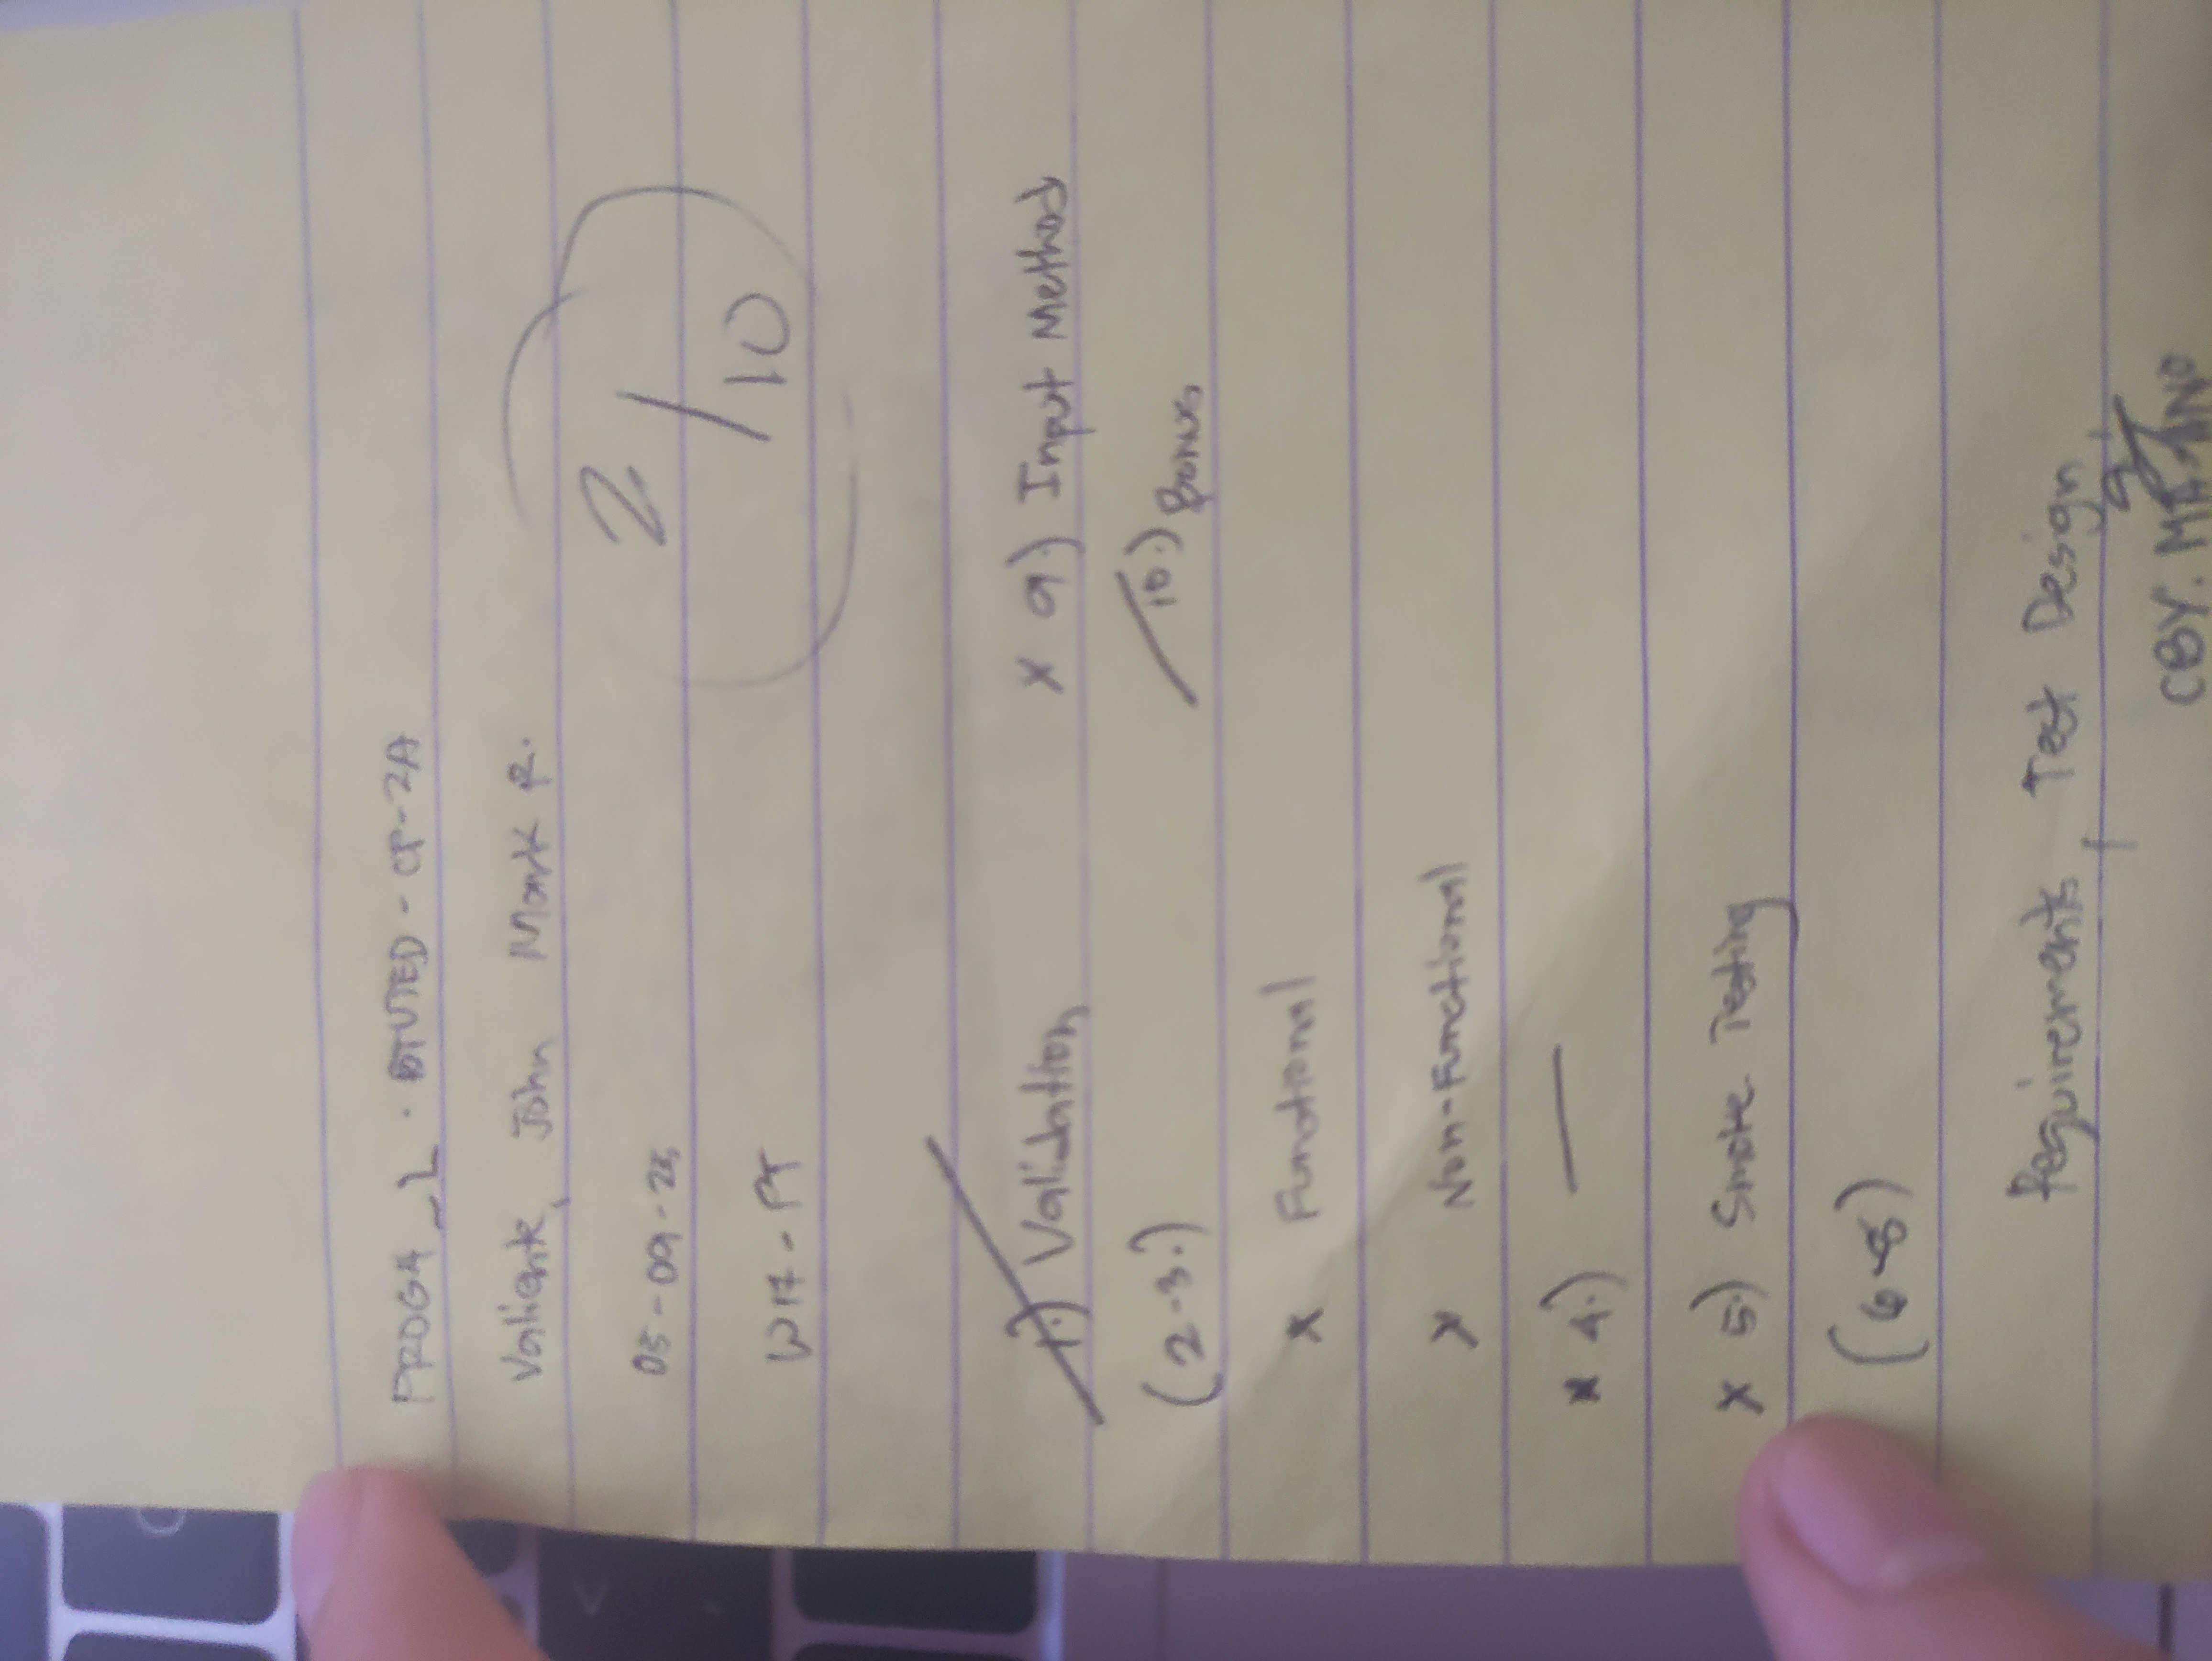 PROG4_L . BTVTED - CP-2A
Valiente, John Mark R.
05-09-25
W17-PT
2/10
1.) Validation
(2-3.)
x Functional
x Non-Functional
x 4.) —
x 5.) Smoke Testing
(6-8)
Requirements, Test Design,
x 9.) Input Method
10.) Bonus
CBY.